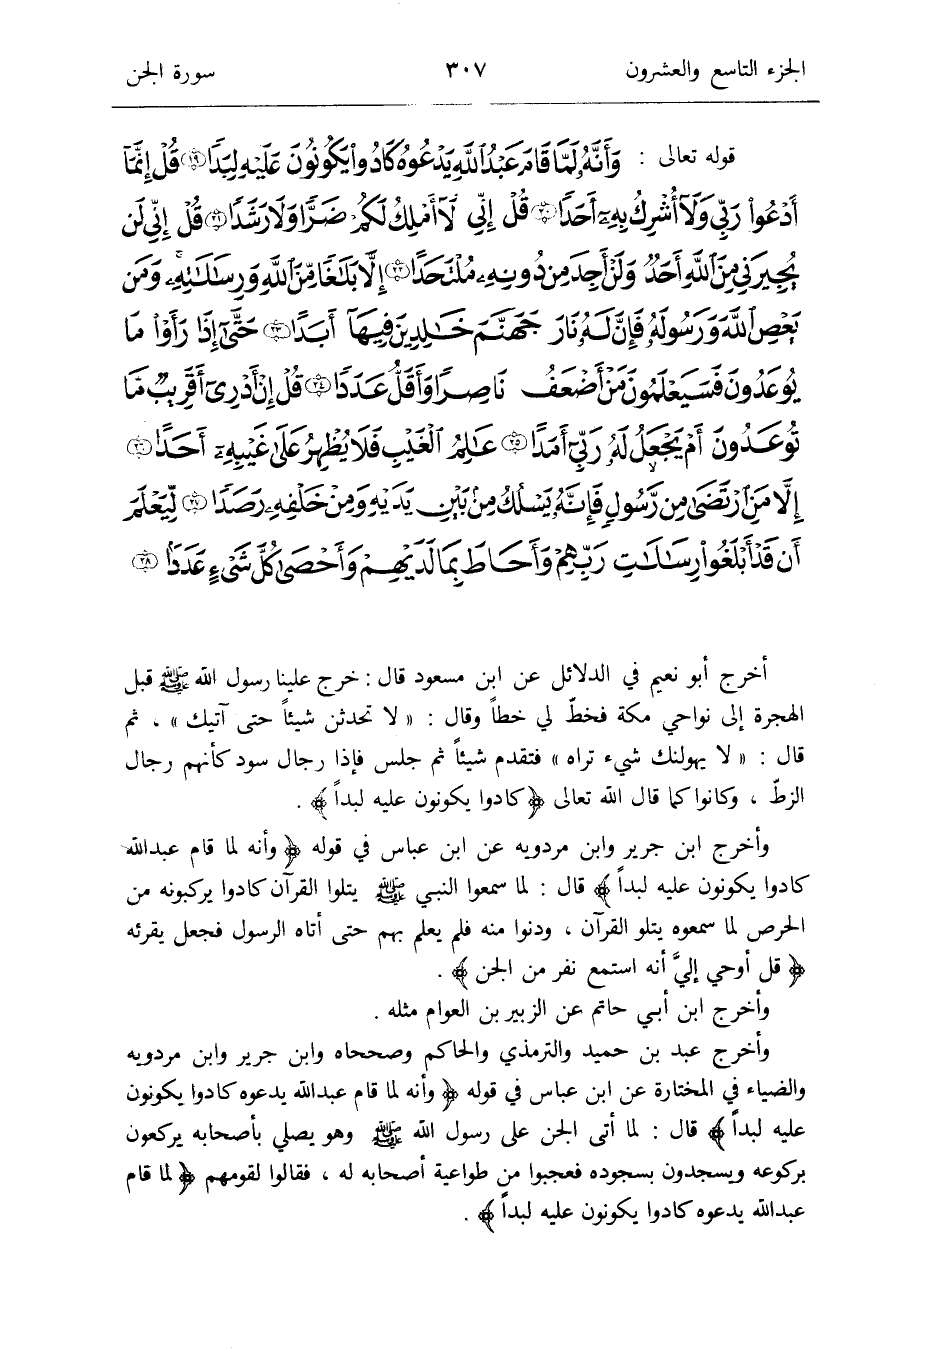 الجزء التاسع والعشرون ٣٠٧ سورة الجن
قوله تعالى : وَأَنَّهُۥ لَمَّا قَامَ عَبْدُ ٱللَّهِ يَدْعُوهُ كَادُواْ يَكُونُونَ عَلَيْهِ لِبَدًا ۝١٩ قُلْ إِنَّمَآ
أَدْعُواْ رَبِّي وَلَآ أُشْرِكُ بِهِۦٓ أَحَدًا ۝٢٠ قُلْ إِنِّي لَآ أَمْلِكُ لَكُمْ ضَرًّا وَلَا رَشَدًا ۝٢١ قُلْ إِنِّي لَن
يُجِيرَنِي مِنَ ٱللَّهِ أَحَدٌ وَلَنْ أَجِدَ مِن دُونِهِۦ مُلْتَحَدًا ۝٢٢ إِلَّا بَلَٰغًا مِّنَ ٱللَّهِ وَرِسَٰلَٰتِهِۦۚ وَمَن
يَعْصِ ٱللَّهَ وَرَسُولَهُۥ فَإِنَّ لَهُۥ نَارَ جَهَنَّمَ خَٰلِدِينَ فِيهَآ أَبَدًا ۝٢٣ حَتَّىٰٓ إِذَا رَأَوْاْ مَا
يُوعَدُونَ فَسَيَعْلَمُونَ مَنْ أَضْعَفُ نَاصِرًا وَأَقَلُّ عَدَدًا ۝٢٤ قُلْ إِنْ أَدْرِيٓ أَقَرِيبٌ مَّا
تُوعَدُونَ أَمْ يَجْعَلُ لَهُۥ رَبِّيٓ أَمَدًا ۝٢٥ عَٰلِمُ ٱلْغَيْبِ فَلَا يُظْهِرُ عَلَىٰ غَيْبِهِۦٓ أَحَدًا ۝٢٦
إِلَّا مَنِ ٱرْتَضَىٰ مِن رَّسُولٍ فَإِنَّهُۥ يَسْلُكُ مِنۢ بَيْنِ يَدَيْهِ وَمِنْ خَلْفِهِۦ رَصَدًا ۝٢٧ لِّيَعْلَمَ
أَن قَدْ أَبْلَغُواْ رِسَٰلَٰتِ رَبِّهِمْ وَأَحَاطَ بِمَا لَدَيْهِمْ وَأَحْصَىٰ كُلَّ شَيْءٍ عَدَدًا ۝٢٨
أخرج أبو نعيم في الدلائل عن ابن مسعود قال : خرج علينا رسول الله ﷺ قبل
الهجرة إلى نواحي مكة فخطّ لي خطاً وقال : « لا تحدثن شيئاً حتى آتيك » ، ثم
قال : « لا يهولنك شيء تراه » فتقدم شيئاً ثم جلس فإذا رجال سود كأنهم رجال
الزطّ ، وكانوا كما قال الله تعالى ﴿ كادوا يكونون عليه لبداً ﴾ .
وأخرج ابن جرير وابن مردويه عن ابن عباس في قوله ﴿ وأنه لما قام عبدالله
كادوا يكونون عليه لبداً ﴾ قال : لما سمعوا النبي ﷺ يتلوا القرآن كادوا يركبونه من
الحرص لما سمعوه يتلو القرآن ، ودنوا منه فلم يعلم بهم حتى أتاه الرسول فجعل يقرئه
﴿ قل أوحي إليَّ أنه استمع نفر من الجن ﴾ .
وأخرج ابن أبي حاتم عن الزبير بن العوام مثله .
وأخرج عبد بن حميد والترمذي والحاكم وصححاه وابن جرير وابن مردويه
والضياء في المختارة عن ابن عباس في قوله ﴿ وأنه لما قام عبدالله يدعوه كادوا يكونون
عليه لبداً ﴾ قال : لما أتى الجن على رسول الله ﷺ وهو يصلي بأصحابه يركعون
بركوعه ويسجدون بسجوده فعجبوا من طواعية أصحابه له ، فقالوا لقومهم ﴿ لما قام
عبدالله يدعوه كادوا يكونون عليه لبداً ﴾ .